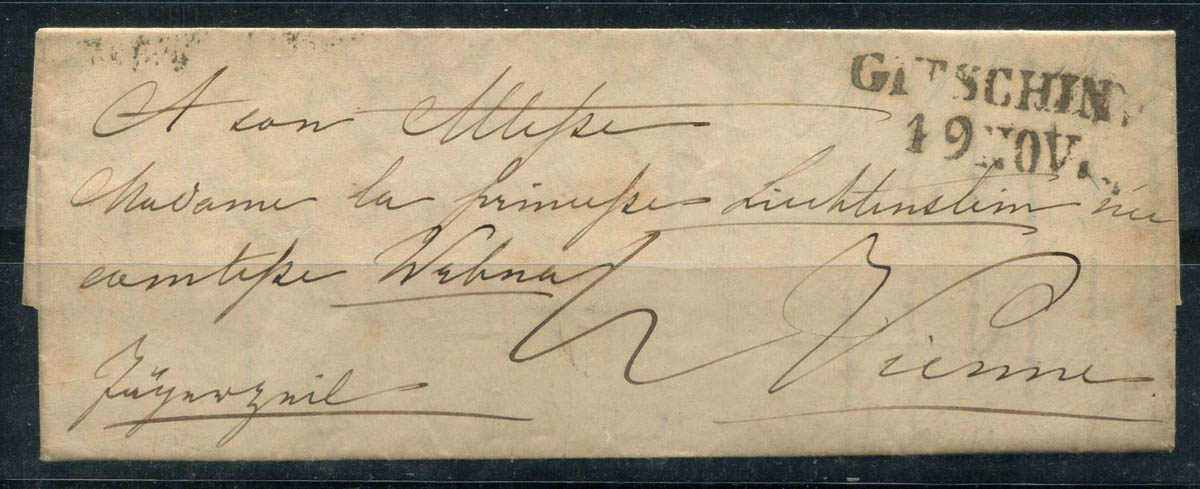 GITSCHIN.
19 NOV.
A son Altesse
Madame la princesse Liechtenstein née
comtesse Wrbna
Vienne
Jägerzeil